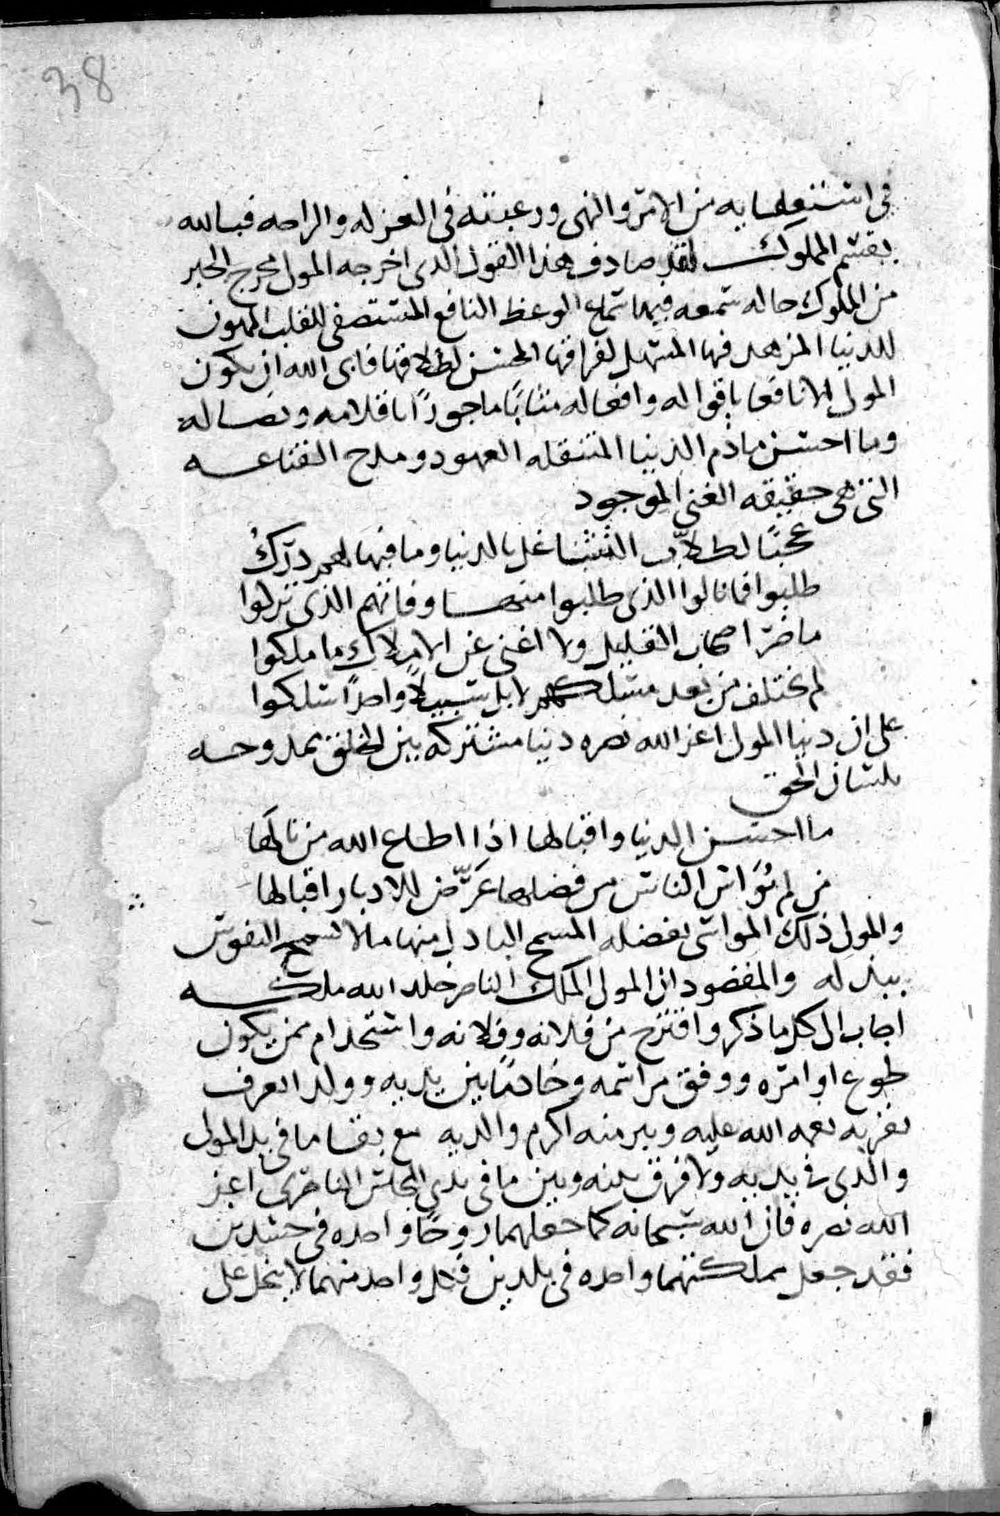 38
في استنعامه به من الامر والنهي ورغبته في العزله والراحه فبالله
يقسم المملوك لقد صادف هذا القول الذى اخرجه المولى مخرج الخبر
من المملوك حاله سمعه فيها سماع الوعظ النافع المستصفى للقلب المهون
للدنيا المزهد فيها المسهل لفراقها المحسن لطلاقها فابى الله ان يكون
المولى الا نافعا باقواله وافعاله مثابًا ماجورًا باقلامه ونصاله
وما احسن ما ذم الدنيا المتنقله العهود ومدح القناعه
التي هي حقيقه الغنى الموجود
عجبًا لطلاب التشاغل بالدنيا وما فيها لعمر دركُ
طلبوا فما نالوا الذى طلبوا منها وفاتهم الذى تركوا
ما ضر اصحاب القليل ولا اغنى عن الاملاك ما ملكوا
لم تختلف من بعد مسلكهم لا بل سبيلا واحدًا سلكوا
على ان دنيا المولى اعز الله نصره دنيا مشتركه بين الخلق ممدوحه
بلسان الحق
ما احسن الدنيا واقبالها اذا اطاع الله من نالها
من لم يُؤاسِ الناس من فضلها عَرَّض للادبار اقبالها
والمولى ذلك المواسي بفضله السمح الباذل منها ما لا تسمح النفوس
ببذله والمقصود ان المولى الملك الناصر خلد الله ملكه
اجاب الى كل ما ذكر واقترح من فلانه وفلانه واستخدام ممن يكون
طوع اوامره ووفق مراسمه وخادمًا بين يديه وولد العرف
نفر به نعمه الله عليه وبر منه اكرم والديه مع بقا ما في يد المولى
والذى في يديه ولا فرق بينه وبين ما في يدي المجلس الناصرى اعز
الله نصره فان الله سبحانه كما جعلهما روحًا واحده في جسدين
فقد جعل مملكتهما واحده في بلدين فكل واحد منهما لا يبخل على